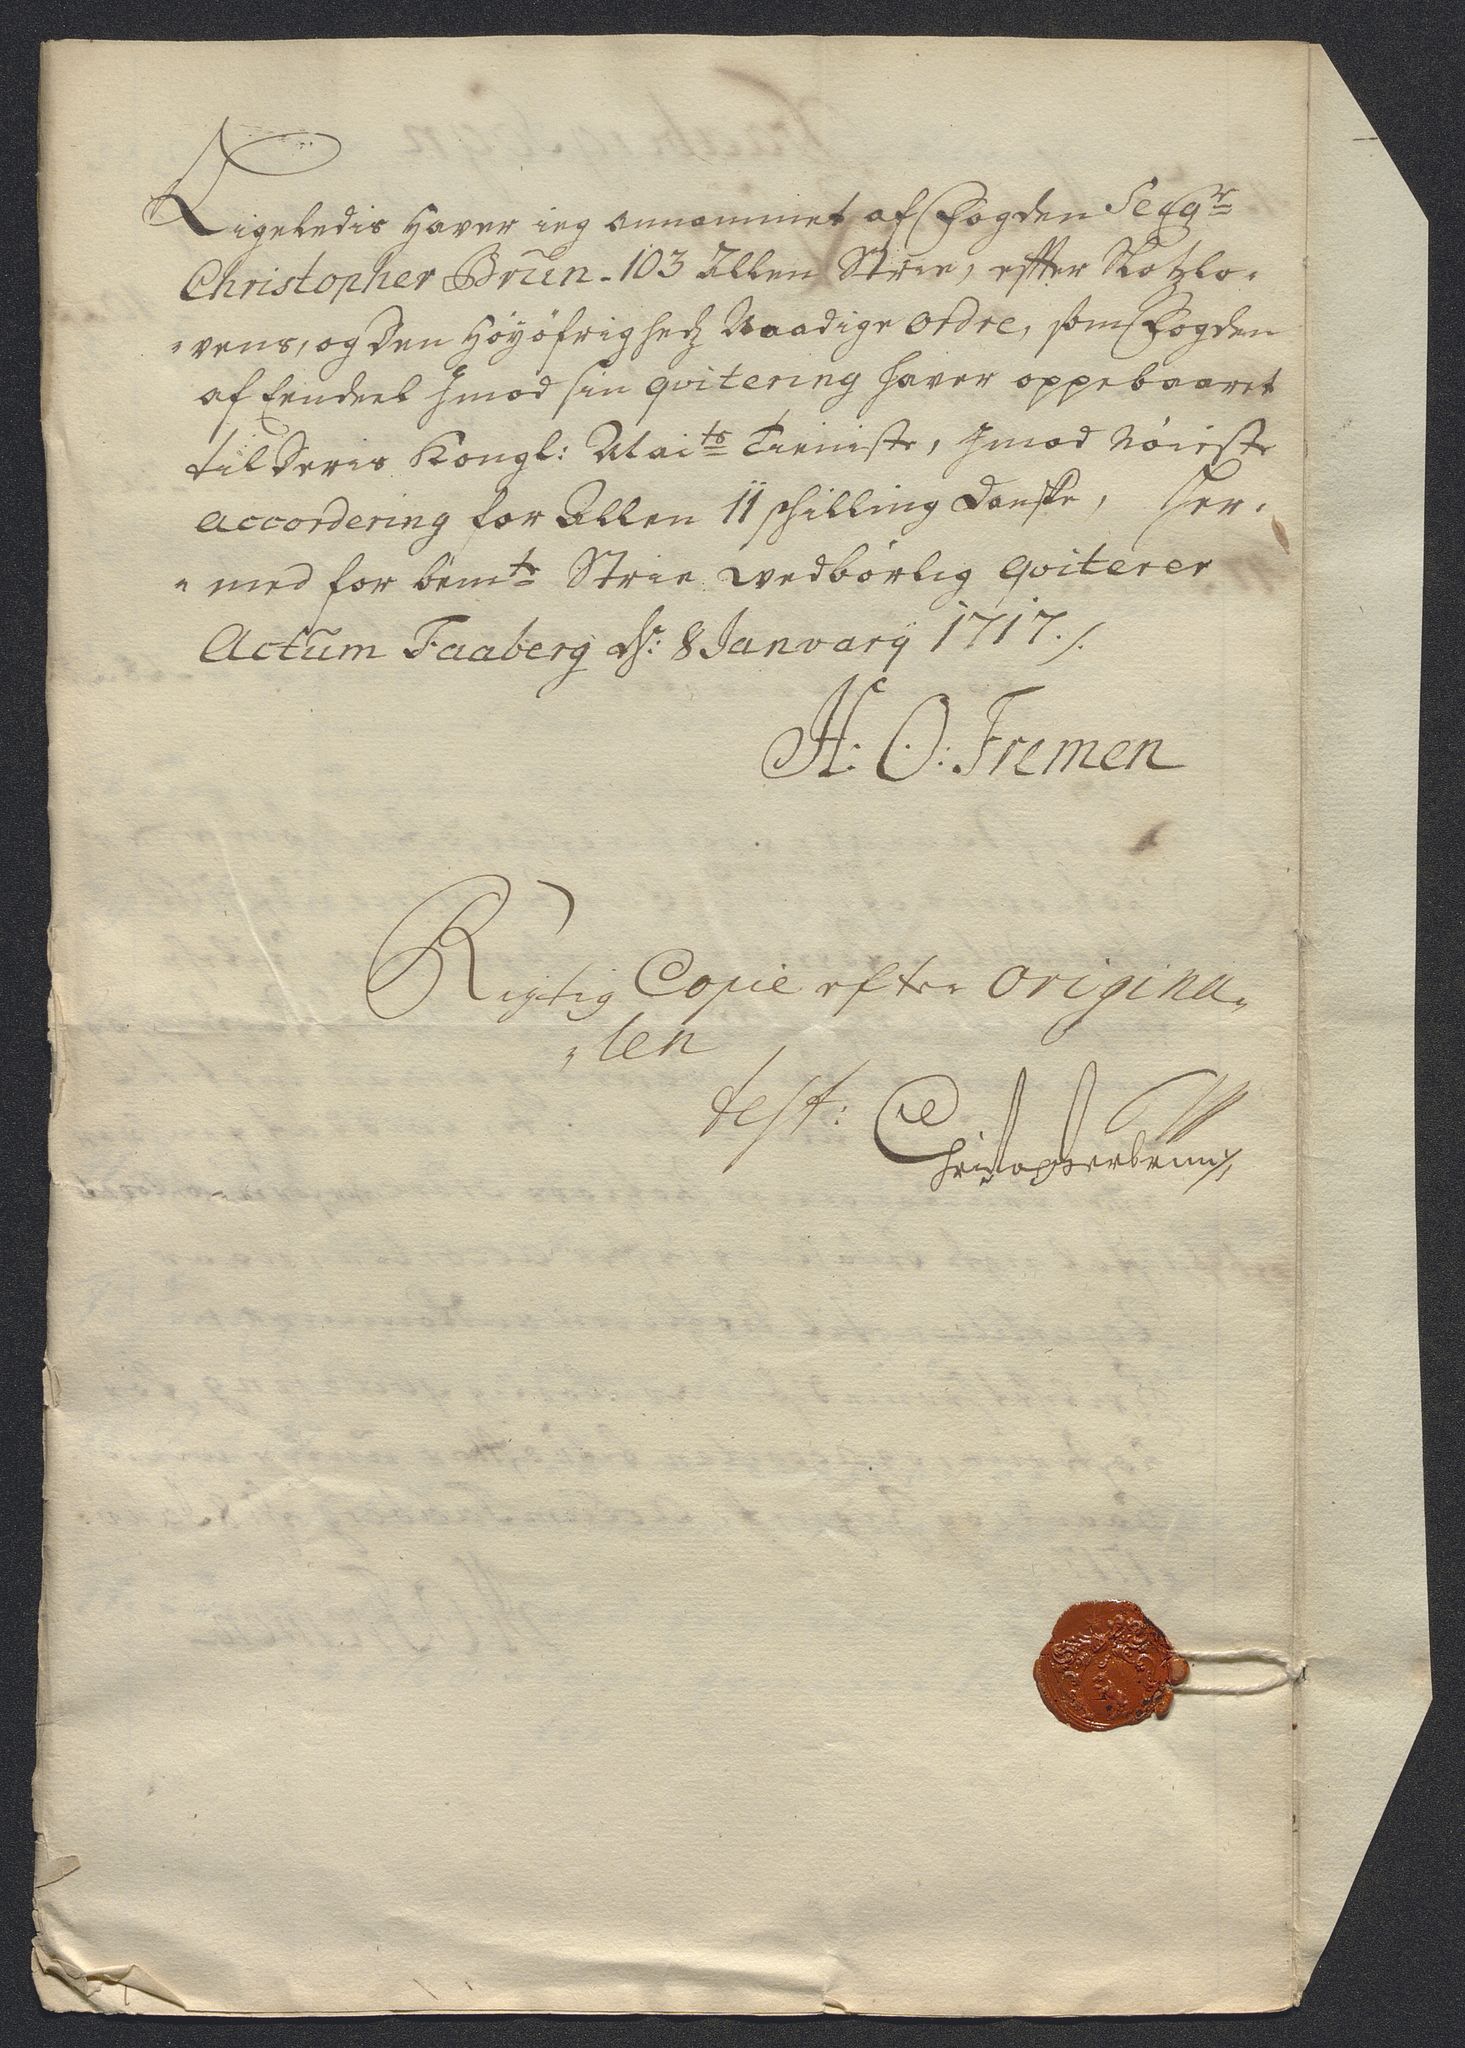 Ligeledis Haver ieg annammet af Fogden Seigr
Christopher Brün - 103 Allen Strie, effter Slotzlo-
-vens, og den Höyöfrighedz Naadige ordre, som Fogden
af Eendeel Jmod sin qvitering haver oppebaaret
til Deris Kongl: Maits Tieniste, Jmod Nöieste
accordering for Allen 11 schilling Danske, Her-
-med for bemte Strie vedbörlig qviterer
Actum Faaberg ds: 8 Janvary 1717./.
H: O: Fremen
Rigtig Copie efter origina-
-len
test: Christopherbrun